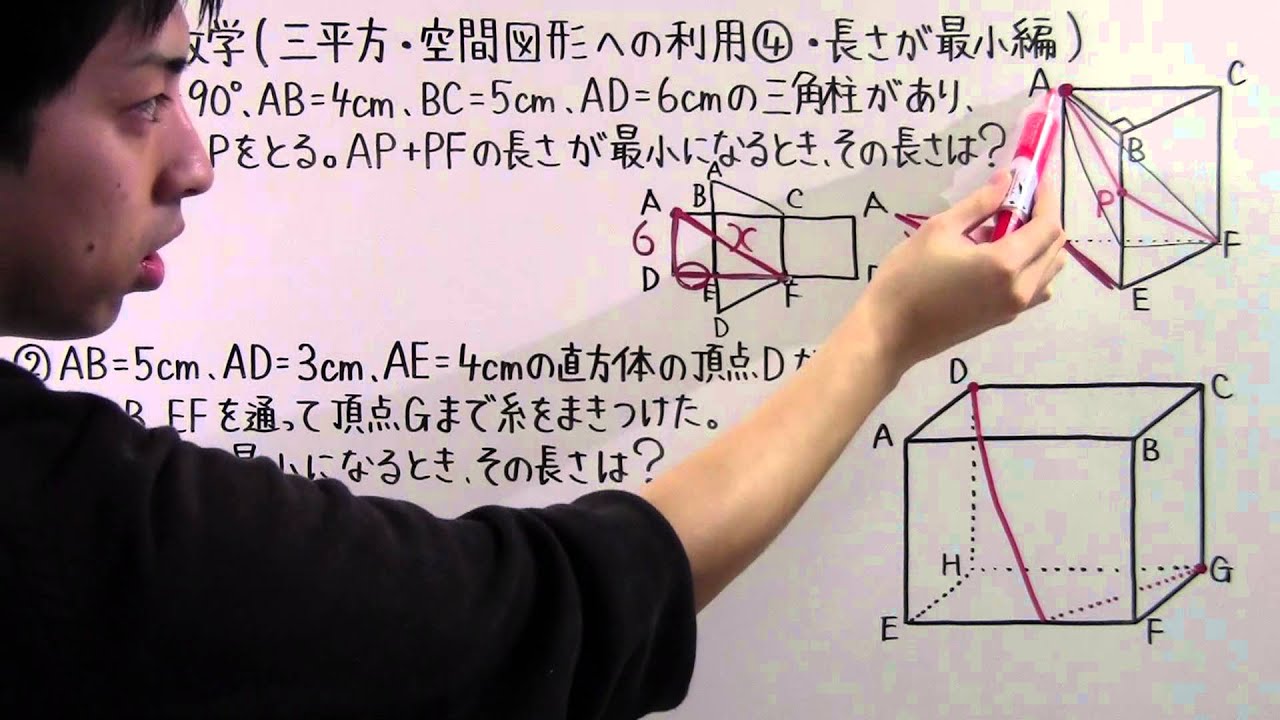 数学(三平方・空間図形への利用④・長さが最小編)
90°、AB=4cm、BC=5cm、AD=6cmの三角柱があり、
Pをとる。AP+PFの長さが最小になるとき、その長さは?
A C
B
P
F
E
A
A B C A
6 x
D E F
D
②AB=5cm、AD=3cm、AE=4cmの直方体の頂点D
B、EFを通って頂点Gまで糸をまきつけた。
最小になるとき、その長さは?
D C
A B
H G
E F